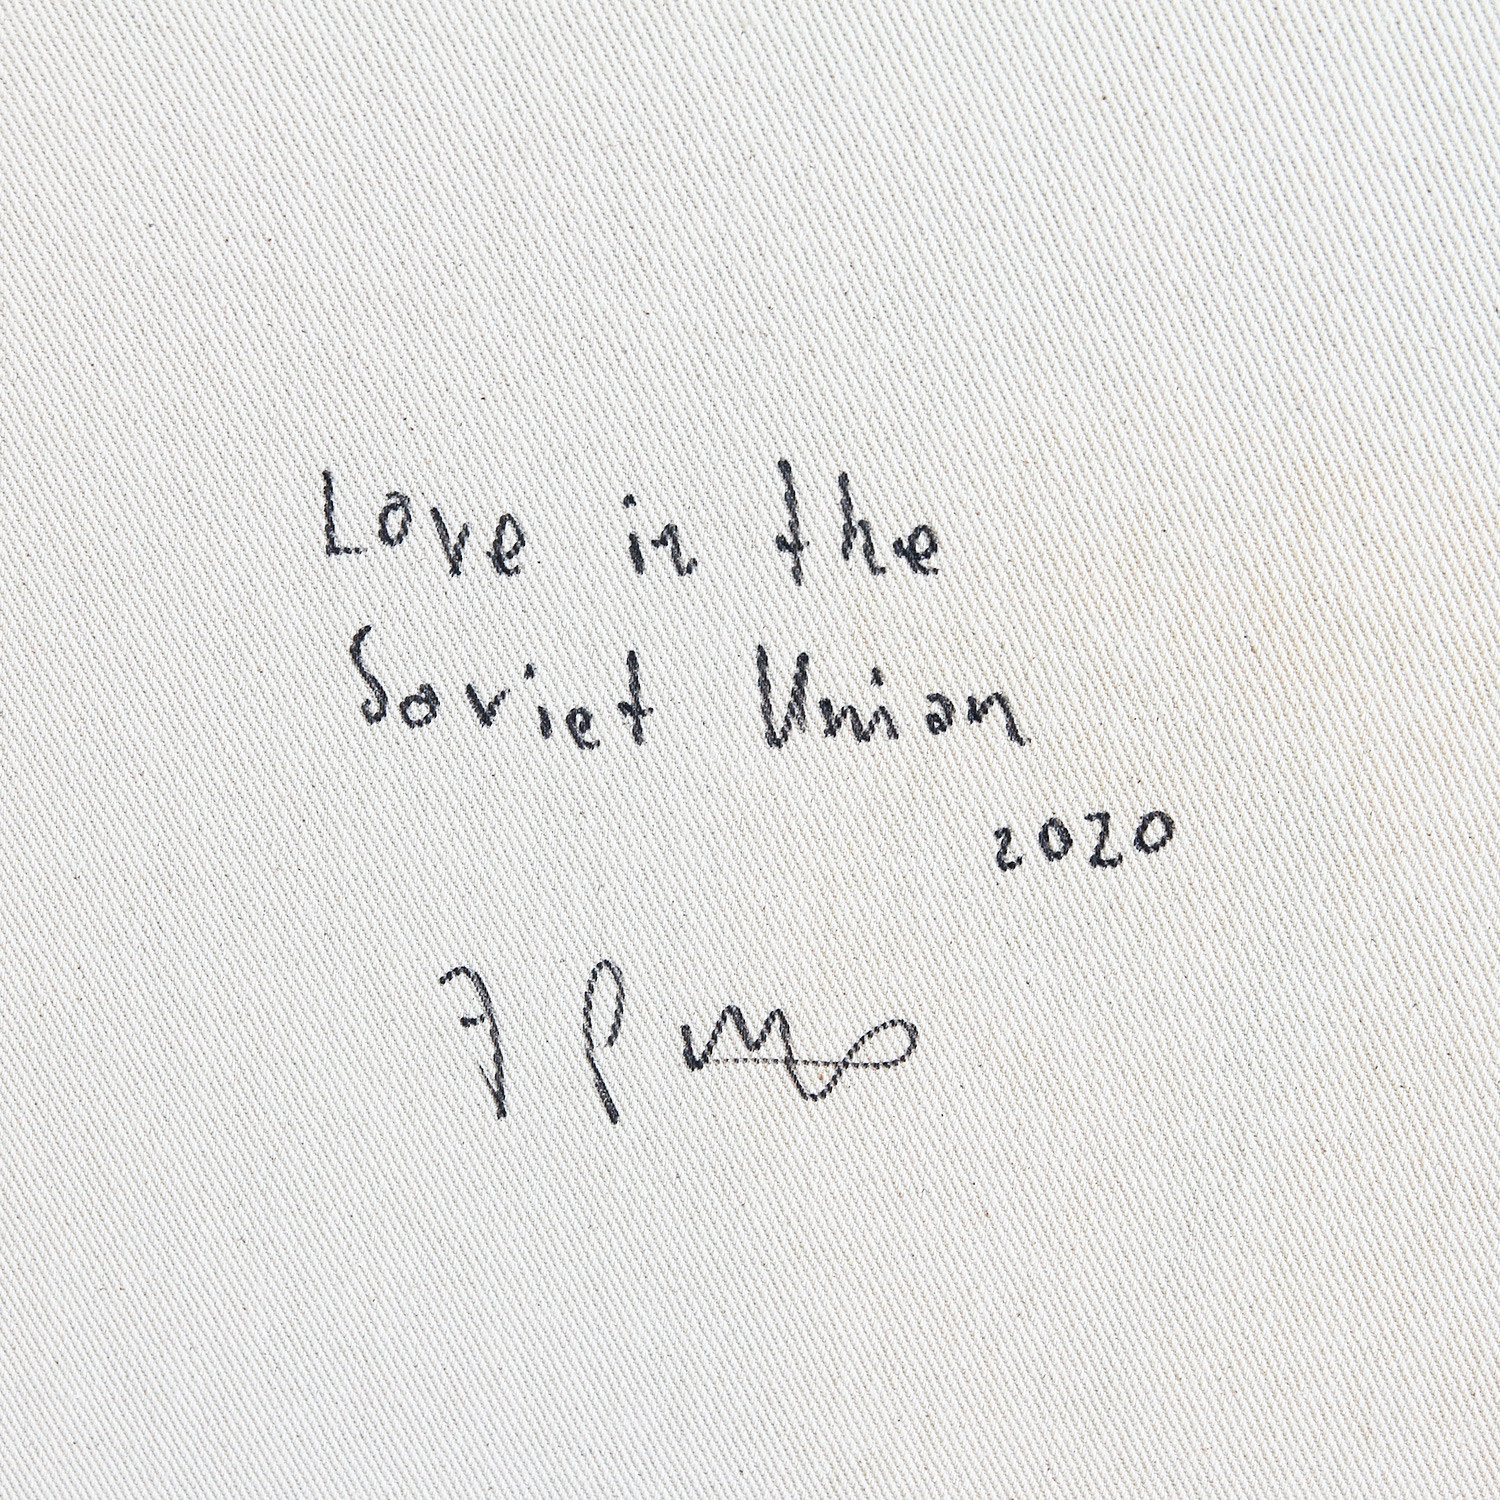 Love in the
Soviet Union
2020